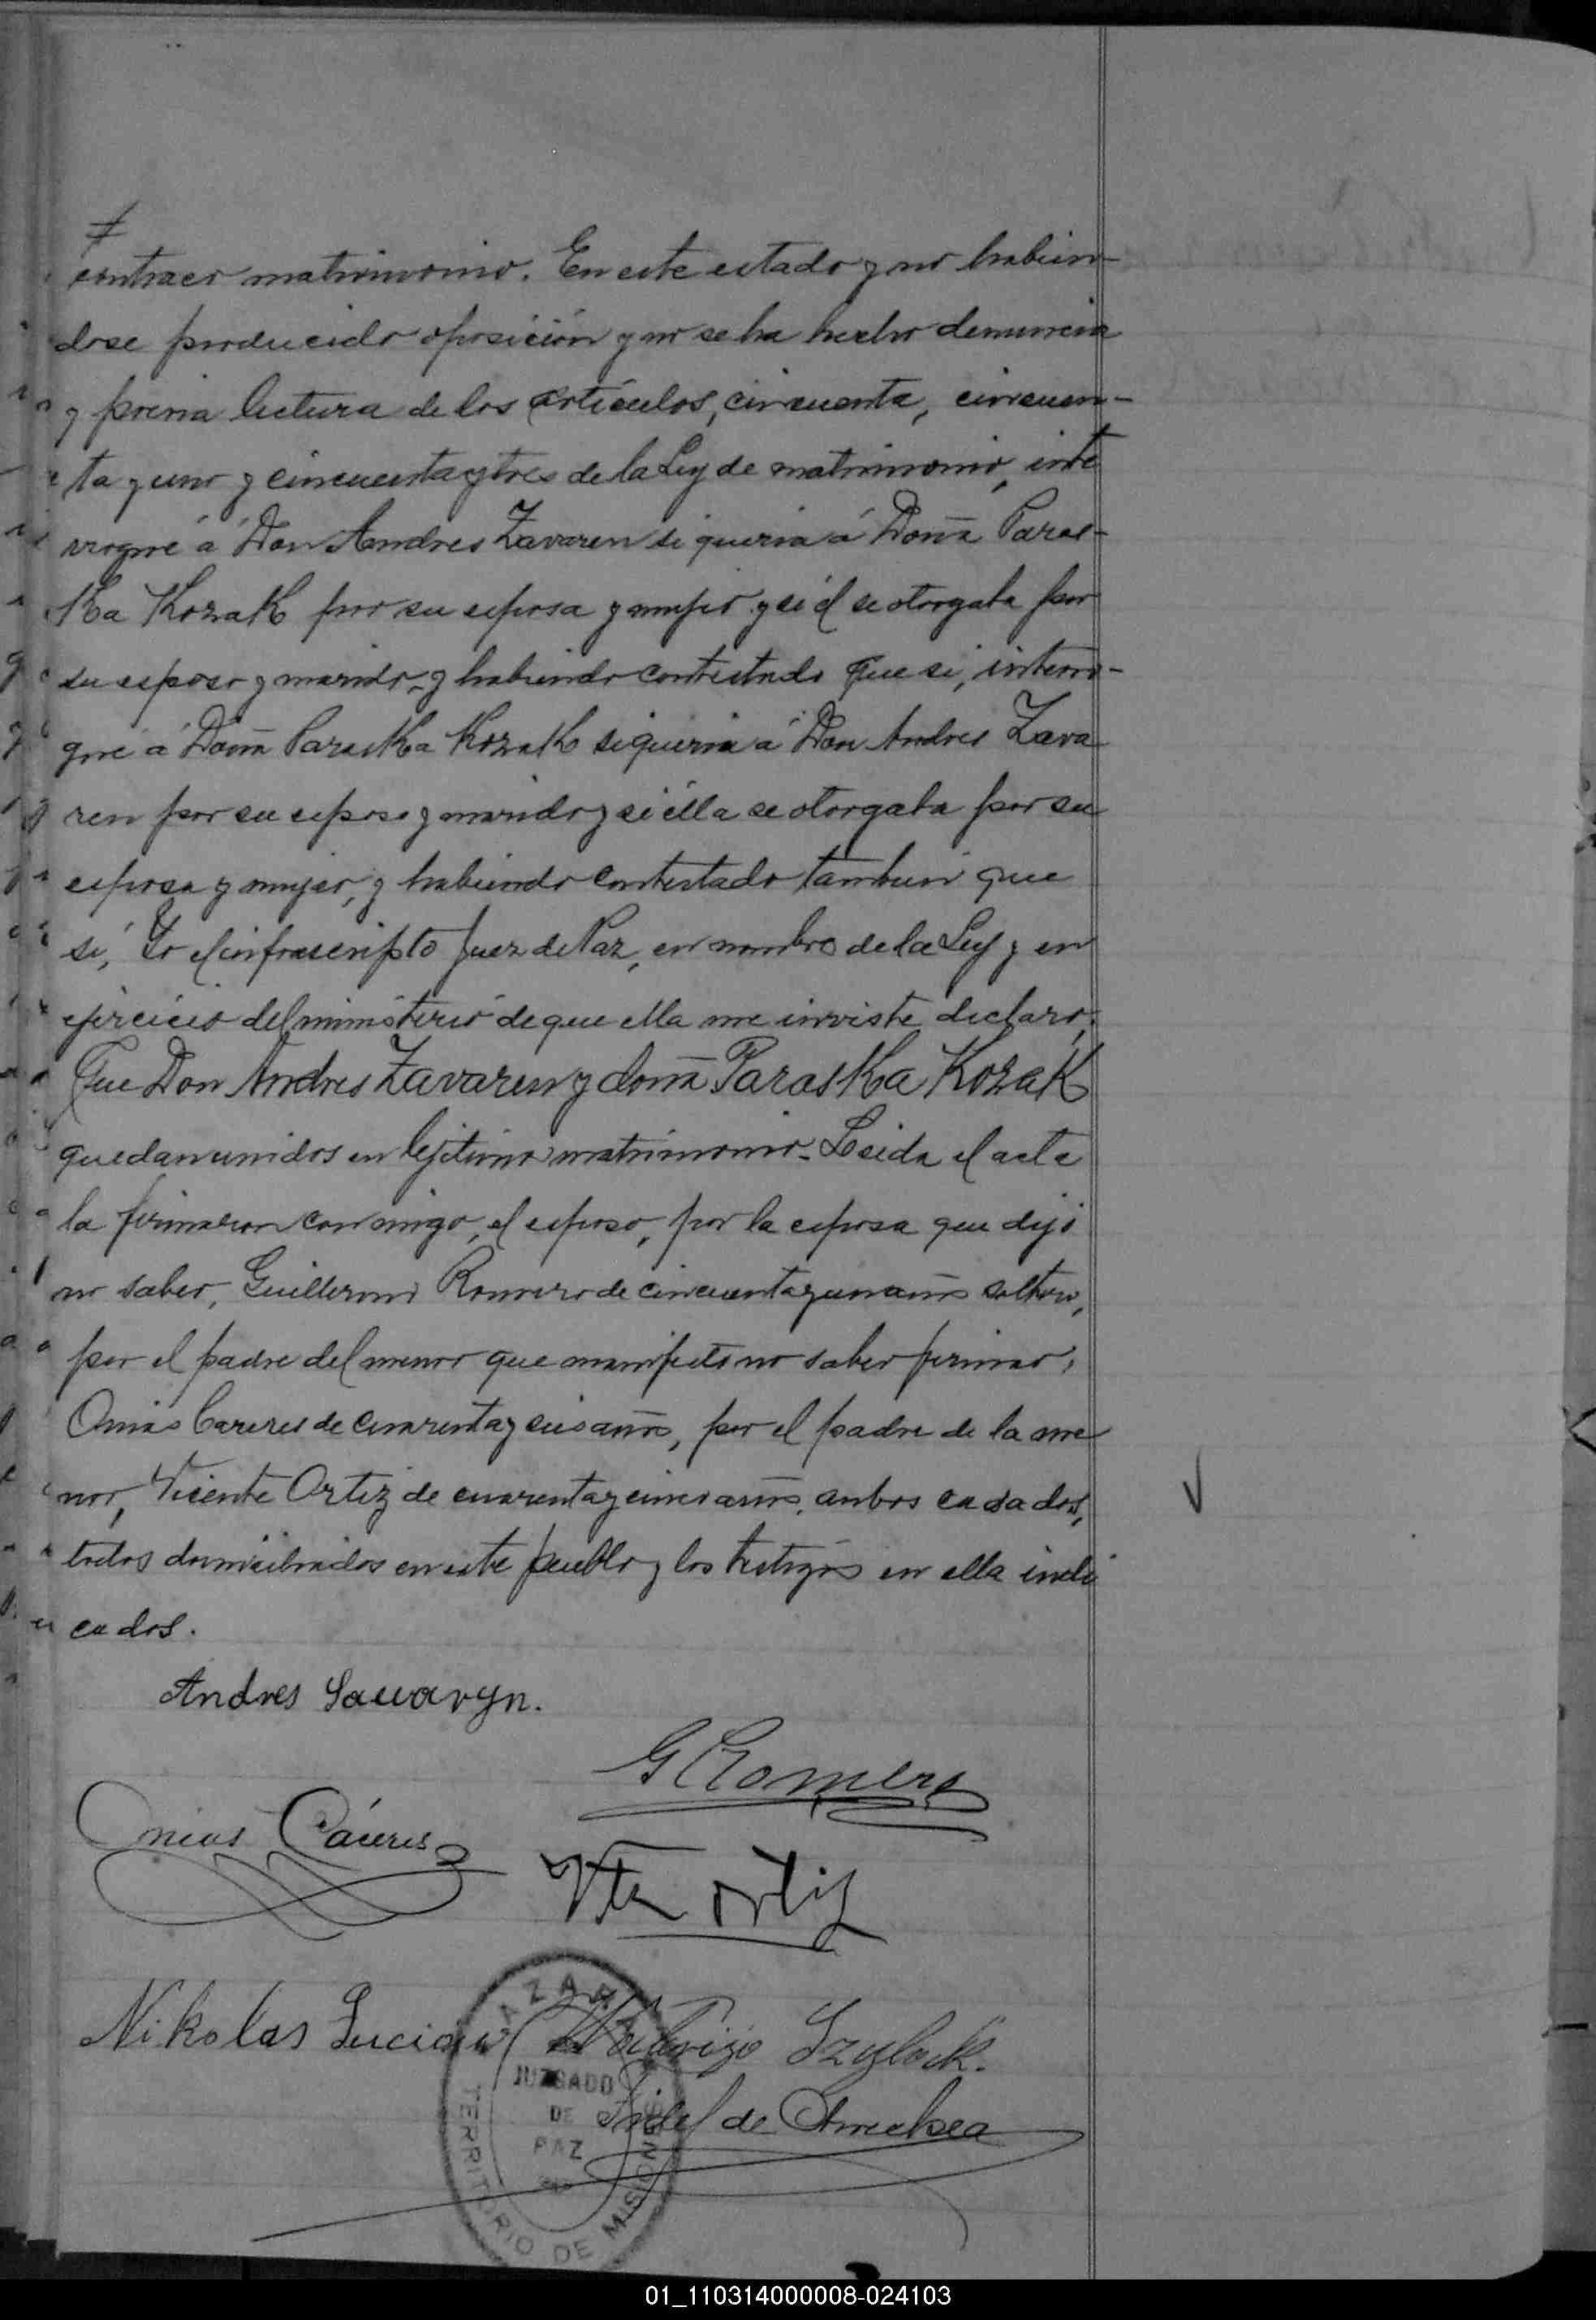 contraer matrimonio. En este estado y no habien-
dose producido oposición y no se ha hecho denuncia
y previa lectura de los artículos, cincuenta, cincuen-
ta y uno y cincuenta y tres de la Ley de matrimonio, inte
rrogué á Don Andres Zavaren si queria á Doña Paras-
Ka Kozak por su esposa y mujer y si él se otorgaba por
su esposo y marido, y habiendo contestado que si, interro-
gué á Doña Paraska Kozak si queria á Don Andres Zava
ren por su esposo y marido y si ella se otorgaba por su
esposa y mujer, y habiendo contestado tambien que
si, Yo el infrascripto Juez de Paz, en nombre de la Ley y en
ejercicio del ministerio de que ella me inviste declaro;
Que Don Andres Zavaren y doña Paraska Kozak
quedan unidos en lejítimo matrimonio. Leida el acta
la firmaron conmigo, el esposo, por la esposa que dijó
no saber, Guillermo Romero de cincuenta y un años soltero,
por el padre del menor que manifestó no saber firmar,
Onias Caceres de cuarenta y seis años, por el padre de la me
nor, Vicente Ortiz de cuarenta y cinco años, ambos casados,
todos domiciliados en este pueblo y los testigos en ella indi
cados.
Andres Sawaryn.
G Romero
Onias Cáceres
Vte Ortiz
Nikolas Luciow
Szylack.
Fidel de
AZARA
JUZGADO
DE
PAZ
TERRITORIO DE MISIONES
01_110314000008-024103